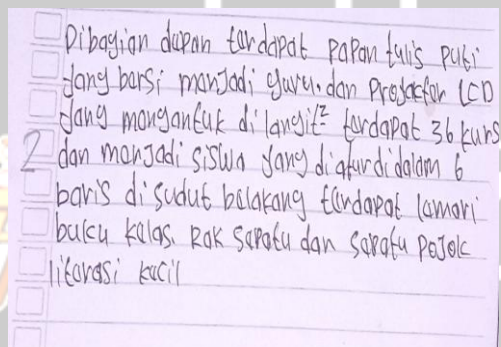 Dibagian dapan tardapat papan tulis puti
yang barsi manjadi guru. dan Proyacfor LCD
yang mongantuk di langit² tardapat 36 kurs
2 dan monjadi siswa yang diaturdidalam 6
baris di sudut balakang tardapat lamari
buku kalas, Rak sapatu dan sapatu pojok
litorasi kacil